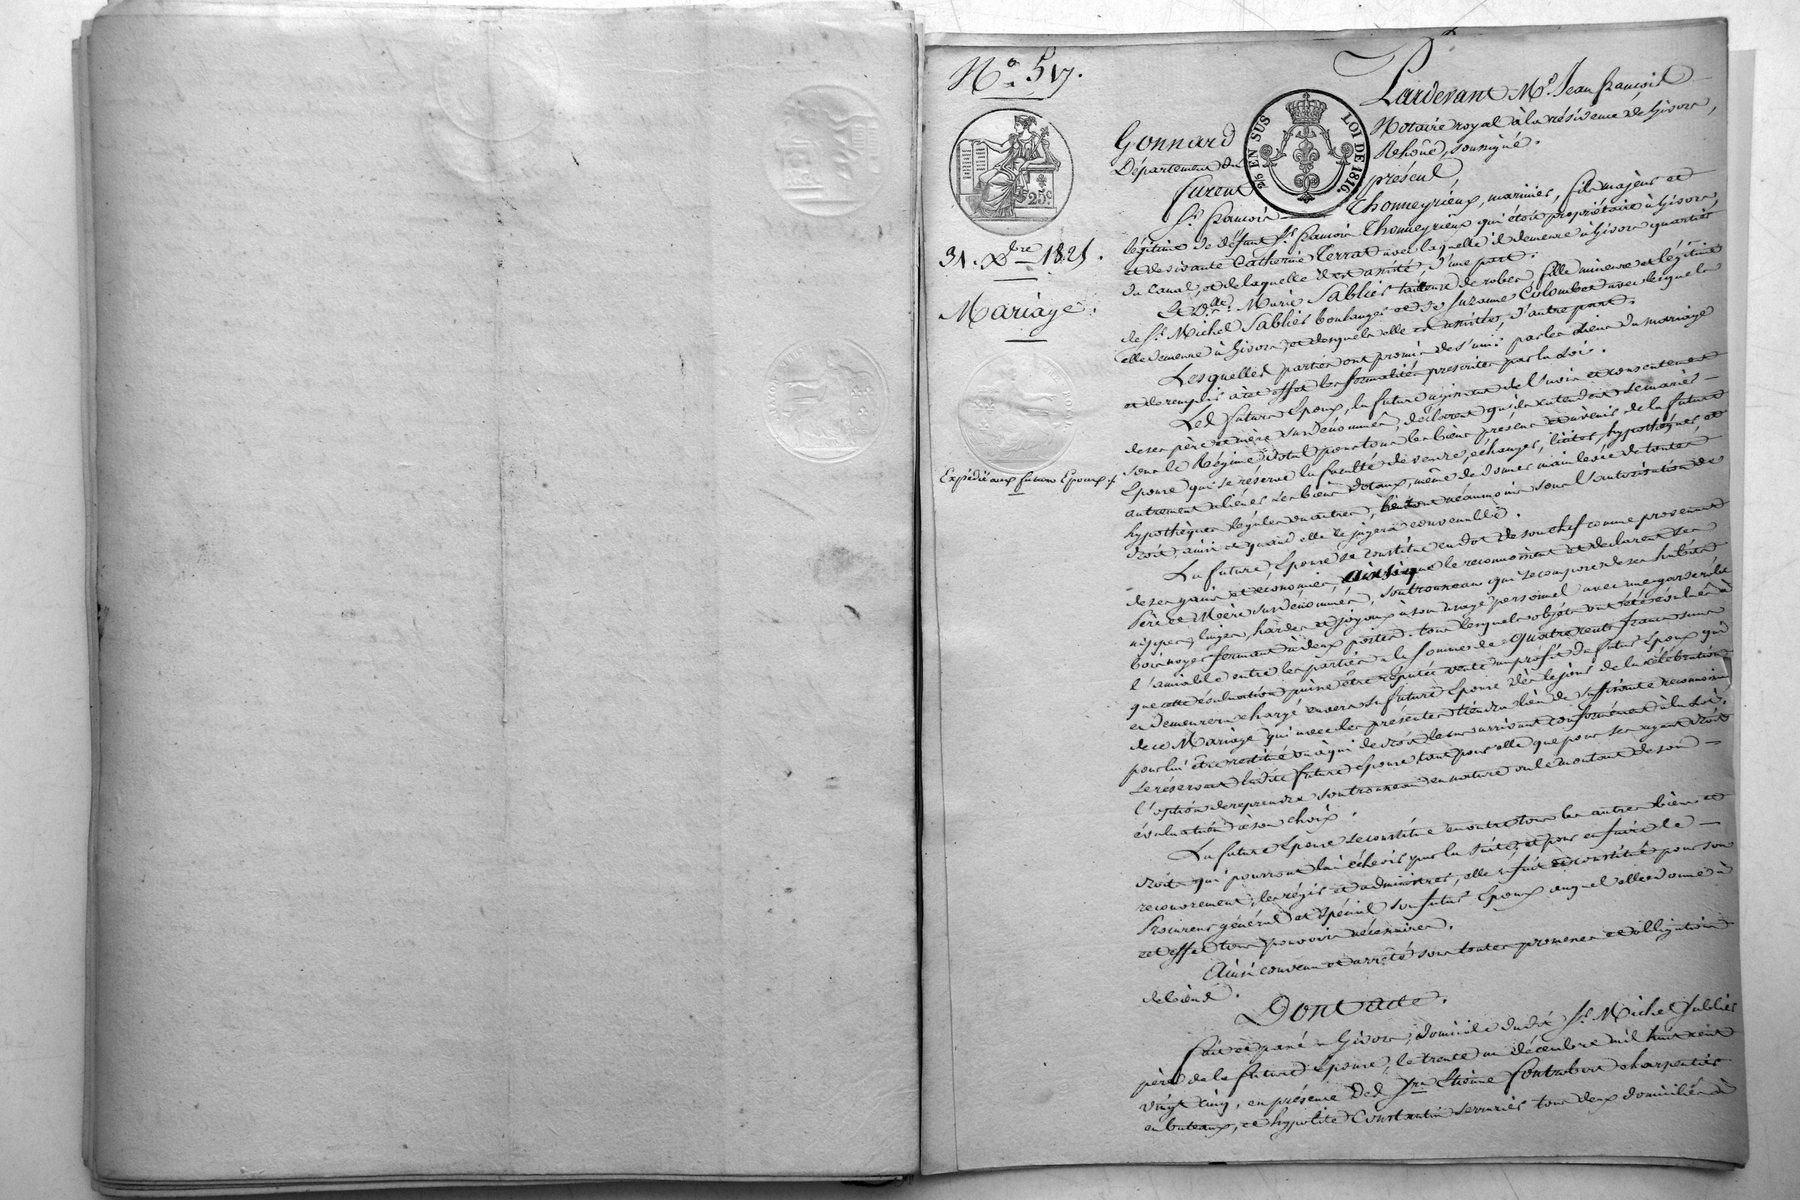 N° 517.
25c
31. Xbre 1825.
Mariage.
Expédié aux futurs Epoux
Pardevant Me. Jean françois
Gonnard
Notaire royal à la résidence de Givors,
Département du
Rhône, soussigné.
2/6 EN SUS LOI DE 1816.
furent
présent
Sr. françois Thonneyrieux, marinier, fils majeur et
légitime de défunt Sr. francois Thonneyrieux qui étoit propriétaire à Givors,
et de vivante Catherine Terrat avec laquelle il demeure à Givors quartier
du Canal, et de laquelle il est assisté, d'une part.
Et Dlle. Marie Sablier tailleuse de robes, fille mineure et légitime
de Sr. Michel Sablier boulanger et de Suzanne Colombet avec lesquels
elle demeure à Givors, et desquels elle est assistée, d'autre part.
Lesquelles parties ont promis de s'unir par les liens du mariage
et de remplir à cet effet les formalités prescrites par la Loi.
Les futurs Epoux, la future agissant de l'avis et consentement
de ses père et mère susdénommés, déclarent qu'ils entendent se marier
sous le Régime Dotal pour tous les biens présent et avenir de la future
Epouse qui se réserve la faculté de vendre, échanger, liciter, hypothéquer, et
autrement aliéner ses biens dotaux, même de donner main levée de toutes
hypothèques légales ou autres, le tout néanmoins sous l'autorisation de
droit ainsi et quand elle le jugera convenable.
La future Epouse se constitue en dot de son chef comme provenant
de ses gains et économies, ainsi que le reconnoissent et déclarent ses
Père et Mère susdénommés, son trousseau qui se compose de ses habits
nippes, linges, hardes et joyaux à son usage personnel avec une garderobe
bois noyer fermant à deux portes. tous lesquels objets ont été évalués à
l'amiable entre les parties à la somme de quatre cents francs sans
que cette évaluation puisse être réputée vente au profit du futur Epoux qui
en demeurera chargé envers sa future Epouse dès le jour de la célébration
de ce Mariage qui avec les présentes tiendra lieu de suffisante reconnoiss
pour lui être restitué ou à qui de droit le cas arrivant conformément à la loi.
se réservant ladite future epouse tant pour elle que pour ses ayant droit
l'option de reprendre son trousseau en nature ou le montant de son
évaluation à son choix.
La future Epouse se constitue en outre tous les autres biens et
droits qui pourront lui échoir par la suite, et pour en faire le
recouvrement, les régir et administrer, elle a fait et constitué pour son
Procureur général et spécial son futur Epoux auquel elle donne à
cet effet tous pouvoirs nécessaires.
Ainsi convenu et arrêté sous toutes promesses et obligations
de biens.
Dont acte.
fait et passé à Givors, domicile dudit Sr. Michel Sablier
père de la future Epouse, le trente un décembre mil huit cent
vingt cinq, en présence des Srs Etienne Fontrobert charpentier
en bateaux, et hypolite Constantin serrurier tous deux domiciliés à